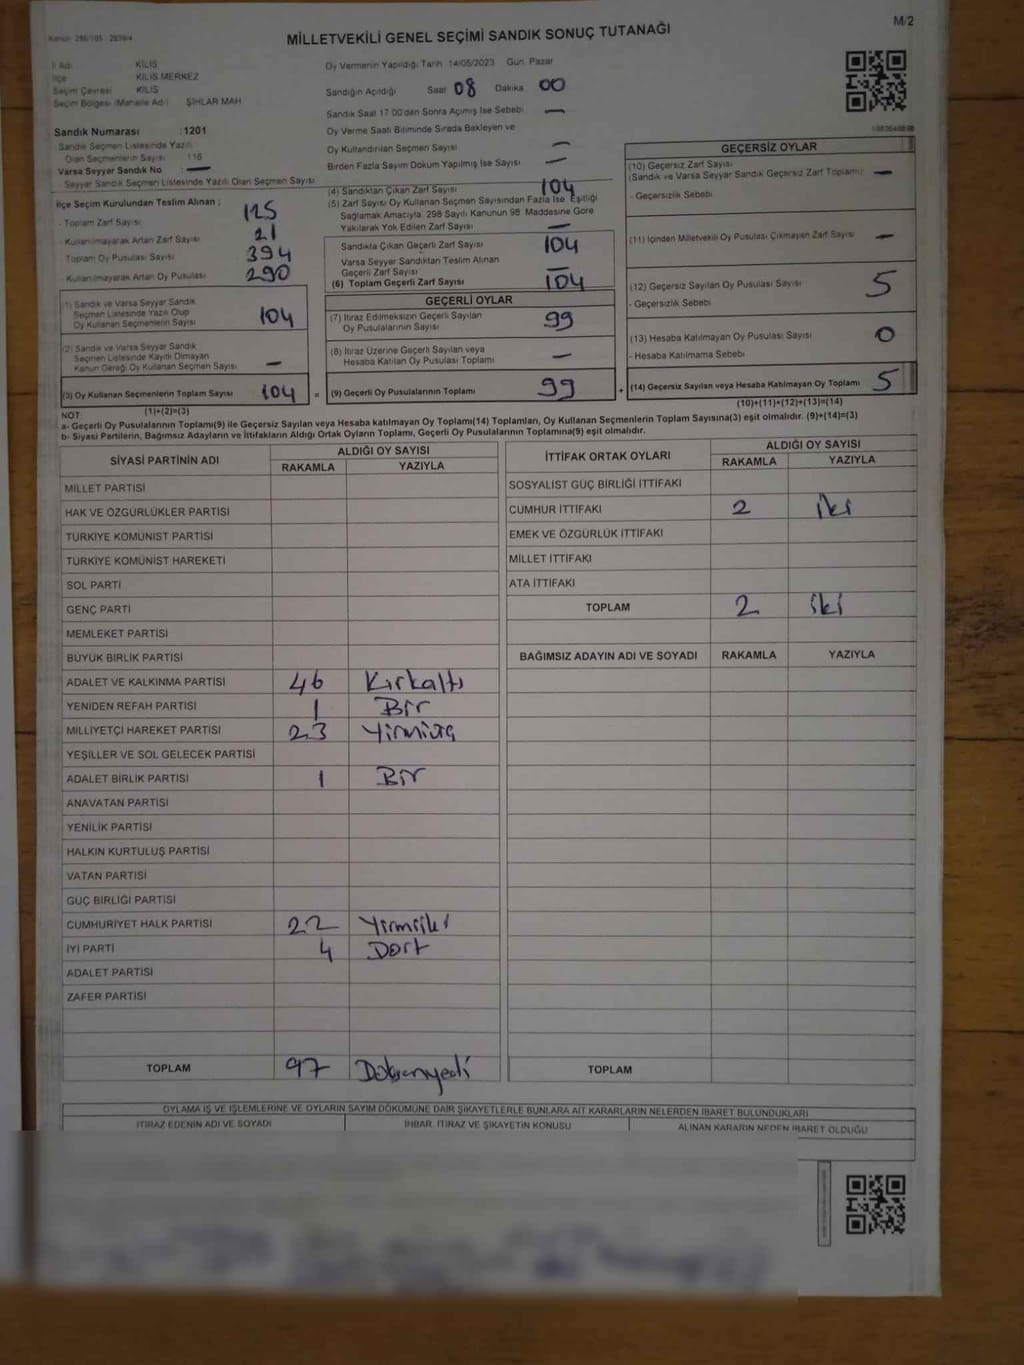 M/2
Kanun: 298/105 - 2839/4
MİLLETVEKİLİ GENEL SEÇİMİ SANDIK SONUÇ TUTANAĞI
İl Adı KİLİS
İlçe KİLİS MERKEZ
Seçim Çevresi KİLİS
Seçim Bölgesi (Mahalle Adı) ŞIHLAR MAH
Sandık Numarası :1201
Sandık Seçmen Listesinde Yazılı
Olan Seçmenlerin Sayısı 116
Varsa Seyyar Sandık No : —
- Seyyar Sandık Seçmen Listesinde Yazılı Olan Seçmen Sayısı
Oy Vermenin Yapıldığı Tarih 14/05/2023 Gün Pazar
Sandığın Açıldığı Saat 08 Dakika 00
Sandık Saat 17:00'den Sonra Açılmış İse Sebebi —
Oy Verme Saati Bitiminde Sırada Bekleyen ve
Oy Kullandırılan Seçmen Sayısı —
Birden Fazla Sayım Döküm Yapılmış İse Sayısı —
İlçe Seçim Kurulundan Teslim Alınan ;
- Toplam Zarf Sayısı 125
- Kullanılmayarak Artan Zarf Sayısı 21
Toplam Oy Pusulası Sayısı 394
- Kullanılmayarak Artan Oy Pusulası 290
(1) Sandık ve Varsa Seyyar Sandık
Seçmen Listesinde Yazılı Olup
Oy Kullanan Seçmenlerin Sayısı 104
(2) Sandık ve Varsa Seyyar Sandık
Seçmen Listesinde Kayıtlı Olmayan
Kanun Gereği Oy Kullanan Seçmen Sayısı —
(3) Oy Kullanan Seçmenlerin Toplam Sayısı 104 =
(1)+(2)=(3)
(4) Sandıktan Çıkan Zarf Sayısı 104
(5) Zarf Sayısı Oy Kullanan Seçmen Sayısından Fazla İse Eşitliği
Sağlamak Amacıyla 298 Sayılı Kanunun 98. Maddesine Göre
Yakılarak Yok Edilen Zarf Sayısı —
Sandıkta Çıkan Geçerli Zarf Sayısı 104
Varsa Seyyar Sandıktan Teslim Alınan
Geçerli Zarf Sayısı —
(6) Toplam Geçerli Zarf Sayısı 104
GEÇERLİ OYLAR
(7) İtiraz Edilmeksizin Geçerli Sayılan
Oy Pusulalarının Sayısı 99
(8) İtiraz Üzerine Geçerli Sayılan veya
Hesaba Katılan Oy Pusulası Toplamı —
(9) Geçerli Oy Pusulalarının Toplamı 99 +
GEÇERSİZ OYLAR
(10) Geçersiz Zarf Sayısı
(Sandık ve Varsa Seyyar Sandık Geçersiz Zarf Toplamı) —
- Geçersizlik Sebebi
(11) İçinden Milletvekili Oy Pusulası Çıkmayan Zarf Sayısı —
(12) Geçersiz Sayılan Oy Pusulası Sayısı 5
- Geçersizlik Sebebi
(13) Hesaba Katılmayan Oy Pusulası Sayısı 0
- Hesaba Katılmama Sebebi
(14) Geçersiz Sayılan veya Hesaba Katılmayan Oy Toplamı 5
(10)+(11)+(12)+(13)=(14)
NOT:
a- Geçerli Oy Pusulalarının Toplamı(9) ile Geçersiz Sayılan veya Hesaba katılmayan Oy Toplamı(14) Toplamları, Oy Kullanan Seçmenlerin Toplam Sayısına(3) eşit olmalıdır. (9)+(14)=(3)
b- Siyasi Partilerin, Bağımsız Adayların ve İttifakların Aldığı Ortak Oyların Toplamı, Geçerli Oy Pusulalarının Toplamına(9) eşit olmalıdır.
SİYASİ PARTİNİN ADI ALDIĞI OY SAYISI
RAKAMLA YAZIYLA
MİLLET PARTİSİ
HAK VE ÖZGÜRLÜKLER PARTİSİ
TÜRKİYE KOMÜNİST PARTİSİ
TÜRKİYE KOMÜNİST HAREKETİ
SOL PARTİ
GENÇ PARTİ
MEMLEKET PARTİSİ
BÜYÜK BİRLİK PARTİSİ
ADALET VE KALKINMA PARTİSİ 46 Kırkaltı
YENİDEN REFAH PARTİSİ 1 Bir
MİLLİYETÇİ HAREKET PARTİSİ 23 Yirmiüç
YEŞİLLER VE SOL GELECEK PARTİSİ
ADALET BİRLİK PARTİSİ 1 Bir
ANAVATAN PARTİSİ
YENİLİK PARTİSİ
HALKIN KURTULUŞ PARTİSİ
VATAN PARTİSİ
GÜÇ BİRLİĞİ PARTİSİ
CUMHURİYET HALK PARTİSİ 22 Yirmiiki
İYİ PARTİ 4 Dört
ADALET PARTİSİ
ZAFER PARTİSİ
TOPLAM 97 Doksanyedi
İTTİFAK ORTAK OYLARI ALDIĞI OY SAYISI
RAKAMLA YAZIYLA
SOSYALİST GÜÇ BİRLİĞİ İTTİFAKI
CUMHUR İTTİFAKI 2 iki
EMEK VE ÖZGÜRLÜK İTTİFAKI
MİLLET İTTİFAKI
ATA İTTİFAKI
TOPLAM 2 iki
BAĞIMSIZ ADAYIN ADI VE SOYADI RAKAMLA YAZIYLA
TOPLAM
OYLAMA İŞ VE İŞLEMLERİNE VE OYLARIN SAYIM DÖKÜMÜNE DAİR ŞİKAYETLERLE BUNLARA AİT KARARLARIN NELERDEN İBARET BULUNDUKLARI
İTİRAZ EDENİN ADI VE SOYADI İHBAR, İTİRAZ VE ŞİKAYETİN KONUSU ALINAN KARARIN NEDEN İBARET OLDUĞU